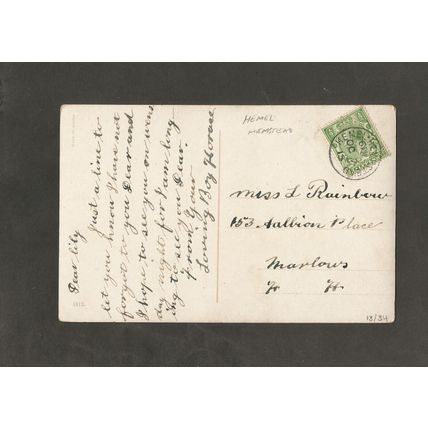 Dear Lily
Just a line to
let you know I have not
forgot to you Dear and
I hope to see you on wens
day night for I am long
ing to see you Dear.
From Your
Loving Boy Horace
1912.
HEMEL
HEMPSTEAD
Miss L Rainbow
153 Aalbion Place
Marlows
H H
13/34